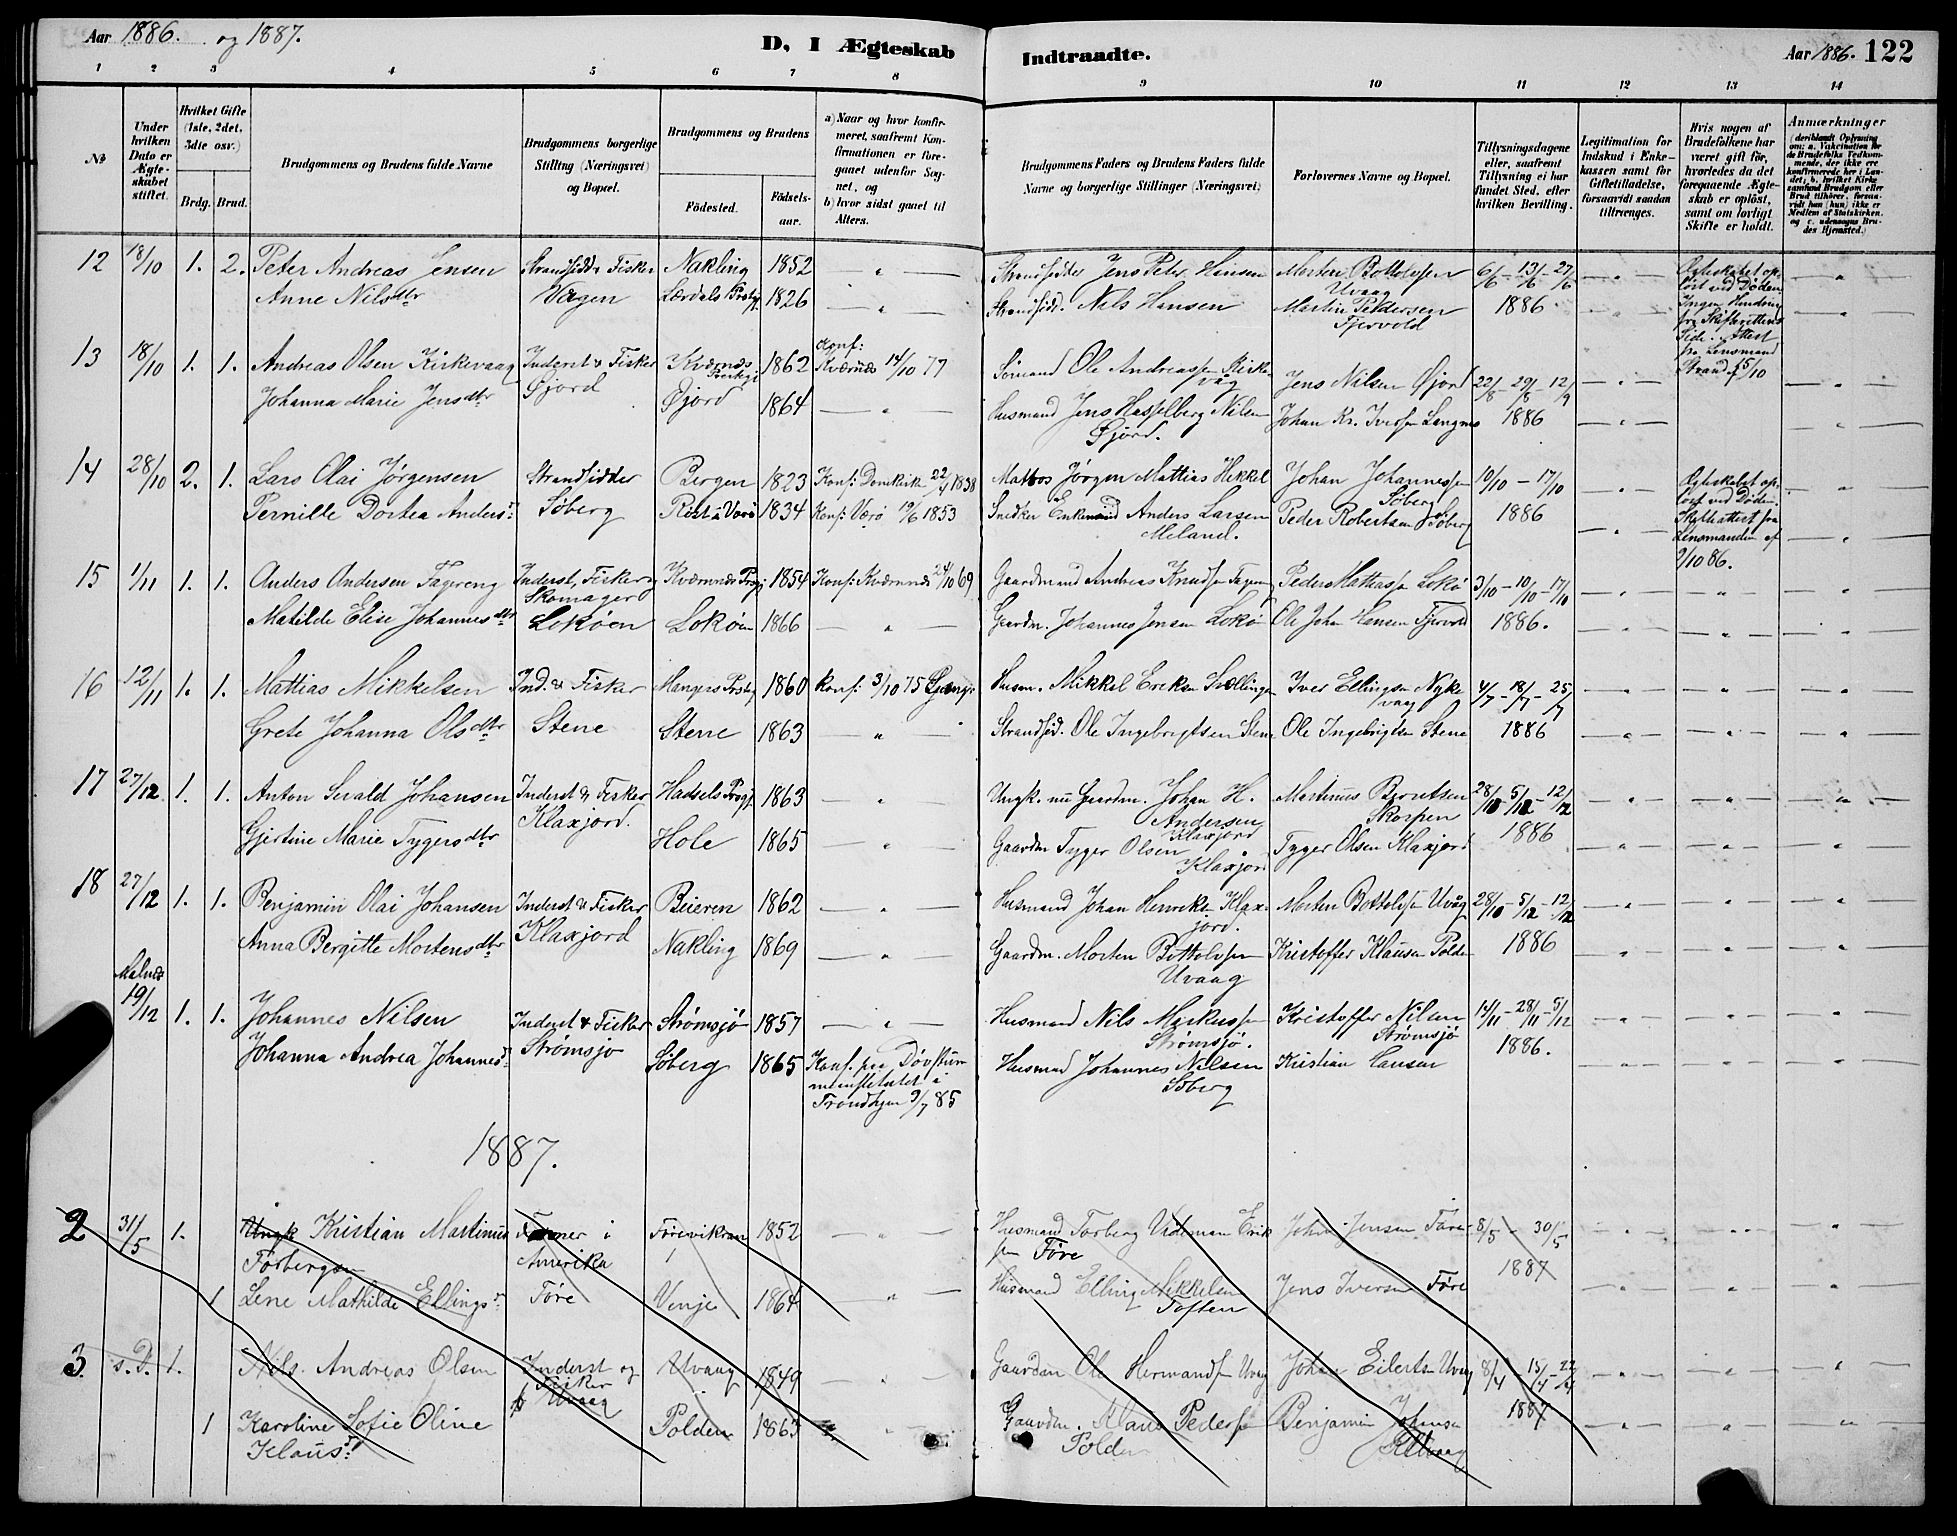 Aar 1886. og 1887.
D. I Ægteskab Indtraadte.
Aar 1886. 122
1 2 3 4 5 6 7 8 9 10 11 12 13 14
No
Under hvilken Dato er Ægteskabet stiftet.
Hvilket Gifte (1ste, 2det, 3die osv.)
Brdg. Brud.
Brudgommens og Brudens fulde Navne
Brudgommens borgerlige Stilling (Næringsvei) og Bopæl.
Brudgommens og Brudens
Fødested. Fødsels-aar.
a) Naar og hvor konfirmeret, saafremt Konfirmationen er foregaaet udenfor Sognet, og
b) hvor sidst gaaet til Alters.
Brudgommens Faders og Brudens Faders fulde Navne og borgerlige Stillinger (Næringsvei)
Forlovernes Navne og Bopæl.
Tillysningsdagene eller, saafremt Tillysning ei har fundet Sted, efter hvilken Bevilling.
Legitimation for Indskud i Enkekassen samt for Giftetilladelse, forsaavidt saadan tiltrænges.
Hvis nogen af Brudefolkene har været gift før, hvorledes da det foregaaende Ægteskab er opløst, samt om lovligt Skifte er holdt.
Anmærkninger (deriblandt Oplysning om: a. Vakcination for de Brudefolks Vedkommende, der ikke ere konfirmerede her i Landet; b. hvilket Kirkesamfund Brudgom eller Brud tilhører, forsaavidt han (hun) ikke er Medlem af Statskirken, og c. udensogns Brudes Hjemsted.)
12 18/10 1. 2. Peter Andreas Jensen Strandsidder Fisker Nakling 1852 — " — Strandsidder Jens Peter Hansen Morten Bottolfsen Uvaag 6/6 - 13/6 - 27/6 — " — Ægteskabet opløst ved Døden. Ingen Hindring fra Skifterettens Side. Attest fra Lensmand Strand 15/10 — " —
Anne Nilsdtr Vågen Lærdals Prstgj. 1826 — " — Strandsidd. Nils Hansen Martin Pedersen Fjervold 1886
13 18/10 1. 1. Andreas Olsen Kirkevaag Inderst & Fisker Kværnes Prestgj 1862 Konf: Kværnes 14/10 77 Sømand Ole Andreassen Kirkevåg Jens Nilsen Øjord 22/8 - 29/8 - 12/9 — " —
Johanna Marie Jensdtr Øjord Øjord 1864 — " — Husmand Jens Hasselberg Nilsen Øjord. Johan Kr. Iversen Langnes 1886 — " —
14 28/10 2. 1. Lars Olai Jørgensen Strandsidder Bergen 1823 Konf: Domkirk 22/4 1838 Matros Jørgen Mattias Hekkel Johan Johannessen Søberg 10/10 - 17/10 — " — Ægteskabet opløst ved Døden. Skifteattest fra Lensmanden af 9/10 86. — " —
Pernille Dortea Andersdr Søberg Røst i Værø 1834 Konf: Værø 19/6 1853 Snedker Enkemand Anders Larsen Meland. Peder Robertsen Søberg 1886 — " —
15 1/11 1. 1. Anders Andersen Fagereng Inderst, Fisker og Skomager Kværnnes Prgj 1854 Konf: Kværnnes 24/10 69 Gaardmand Andreas Knudsen Fagereng Peder Mattiassen Lokø 3/10 - 10/10 - 17/10 — " — — " — — " —
Matilde Elise Johannesdtr Lokøen Lokøen 1866 — " — Gaardm. Johannes Jensen Lokø Ole Johan Hansen Fjervold 1886. — " — — " — — " —
16 12/11 1. 1. Mattias Mikkelsen Ind. & Fisker Mangers Prstgj 1860 Konf: 3/10 75 Husm. Mikkel Eriksen Iver Ellingsen Nykvaag 4/7 - 18/7 - 25/7 — " — — " — — " —
Grete Johanna Olsdtr Stene Stene 1863 — " — Strandsid. Ole Ingebrigtsen Stene Ole Ingebrigtsen Stene 1886 — " — — " — — " —
17 27/12 1. 1. Anton Sivald Johansen Inderst & Fisker Hadsels Prgj. 1863 — " — Ungk. nu Gaardm. Johan H. Andersen Klaxjord Martinus Berntsen Skorpen 28/10 - 5/12 - 12/12 — " — — " — — " —
Gjertine Marie Tygersdtr Klaxjord. Hole 1865 — " — Gaardm Tyger Olsen Klaxjord Tyger Olsen Klaxjord 1886 — " — — " — — " —
18 27/12 1. 1. Benjamin Olai Johansen Inderst & Fisker Beieren 1862 — " — Husmand Johan Henriks. Klaxjord. Morten Bottolfsen Uvåg 28/10 - 5/12 - 12/12 — " — — " — — " —
Anna Bergitte Mortensdtr Klaxjord Nakling 1869 — " — Gaardm. Morten Bottolfsen Uvaag Kristoffer Klausen Polden 1886 — " — — " — — " —
Malnes 19/12 1. 1. Johannes Nilsen Inderst & Fisker Strømsjø 1857 — " — Husmand Nils Markussen Strømsjø. Kristoffer Nilsen Strømsjø 14/11 - 28/11 - 5/12 — " — — " — — " —
Johanna Andrea Johannesdr Strømsjø Søberg 1865 Konf. fra Døvstummeinstitutet i Trondhjem 9/7 85 Husmand Johannes Nilsen Søberg Kristian Hansen 1886. — " — — " — — " —
1887.
2 31/5 1. Ungk Kristian Martinus Torbergsen Farmer i Amerika Førevikran 1852 — " — Husmand Torberg Eriksen Føre Johan Jensen Føre 8/5 - 30/5 — " — — " — — " —
1 Lene Mathilde Ellingsdr Føre Vinje 1864 — " — Husmand Elling Mikkelsen Toften Jens Iversen Føre 1887 — " — — " — — " —
3. s. D. 1. Nils Andreas Olsen Inderst og Fisker Uvaag Uvaag 1849 — " — Gaardm Ole Hermandsen Uvaag Johan Eilertsen Uvaag 8/4 - 15/4 - 22/4 — " — — " — — " —
1 Karoline Sofie Oline Klausdr Polden 1863 — " — Gaardm. Klaus Pedersen Polden Benjamin Johansen 1887 — " — — " — — " —